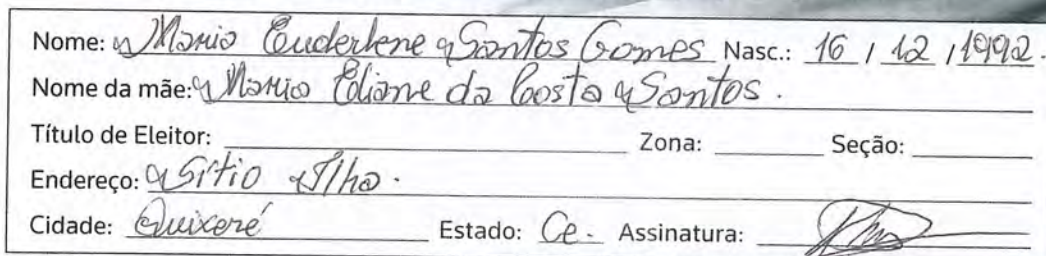 Nome: Maria Euderlene Santos Gomes Nasc.: 16 / 12 / 1992.
Nome da mãe: Maria Eliane da Costa Santos.
Título de Eleitor: Zona: Seção:
Endereço: Sítio Ilha.
Cidade: Quixeré Estado: Ce. Assinatura: